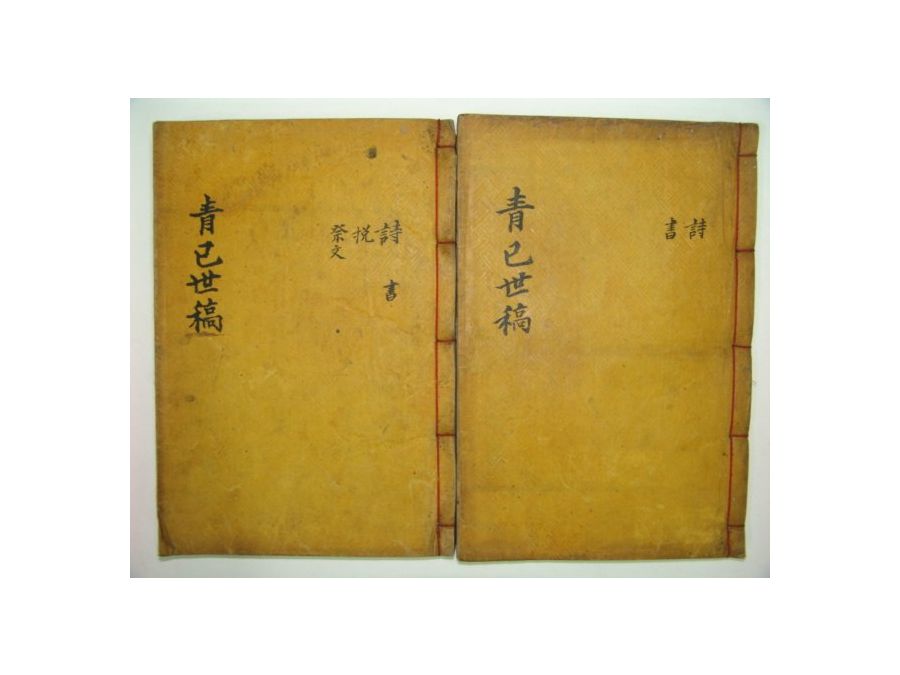 青已世稿
詩 書
挽
祭文
青已世稿
詩
書